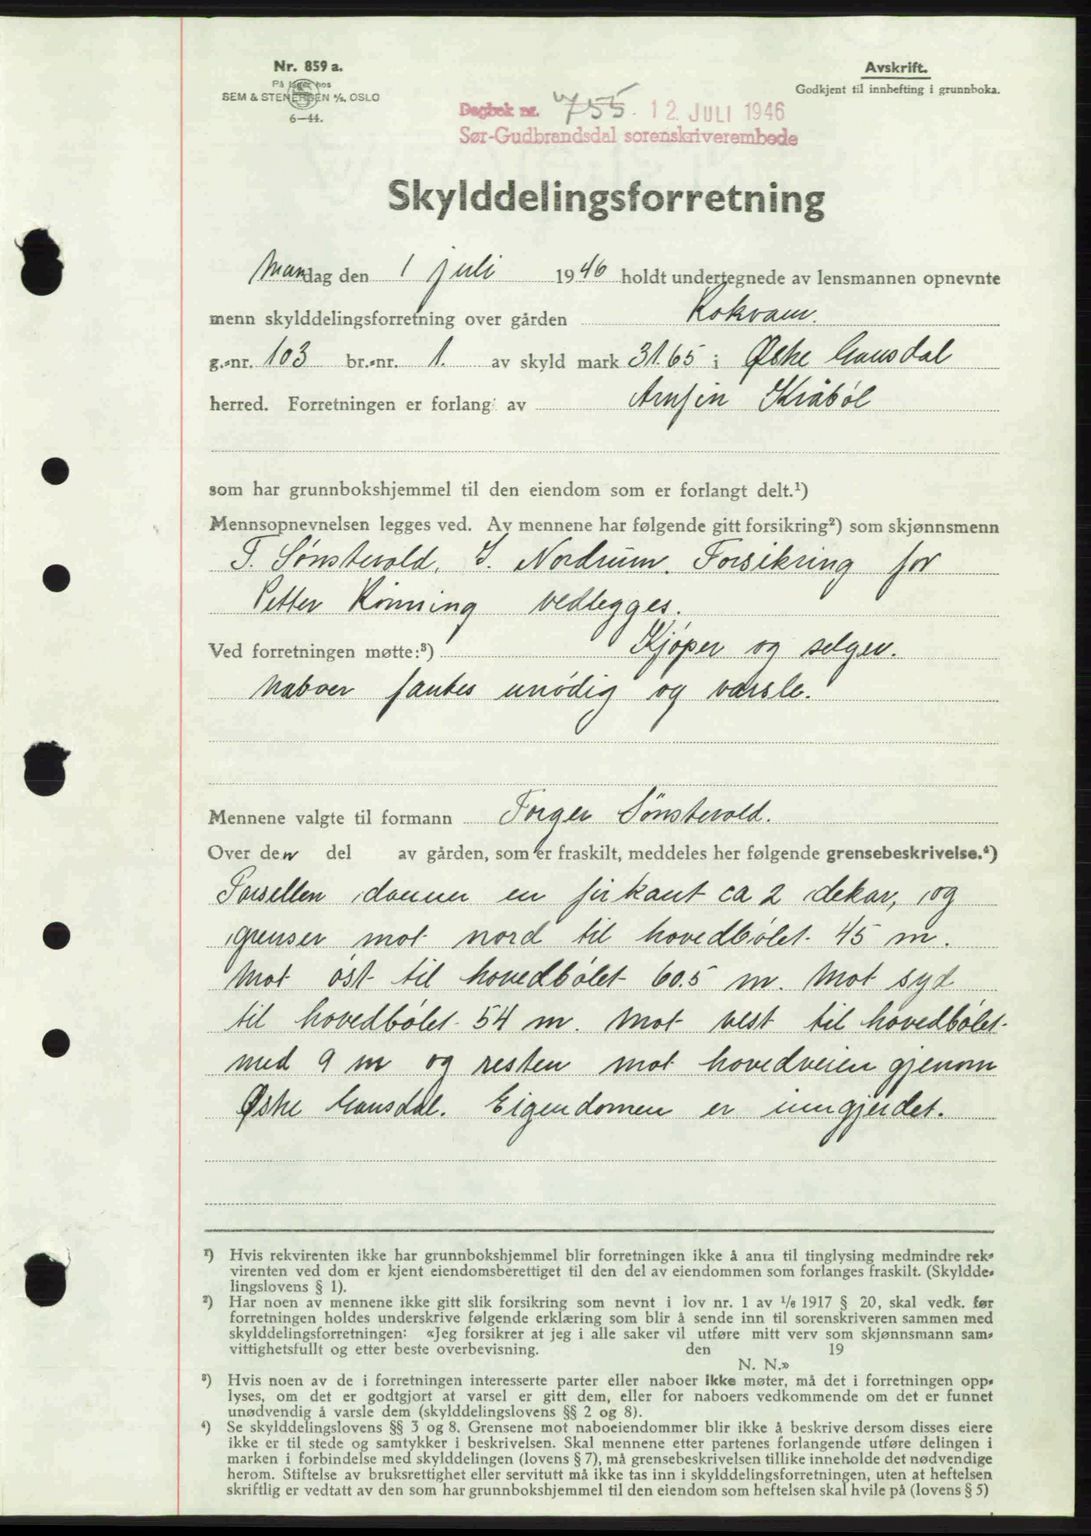 Nr. 859 a.
På lager hos
SEM & STENERSEN A/S, OSLO
6—44.
Avskrift.
Godkjent til innhefting i grunnboka.
Dagbok nr. 755. 12 JULI 1946
Sør-Gudbrandsdal sorenskriverembede
Skylddelingsforretning
Mandag den 1 juli 1946 holdt undertegnede av lensmannen opnevnte
menn skylddelingsforretning over gården Kokvam.
g.-nr. 103 br.-nr. 1. av skyld mark 31.65 i Østre Gausdal
herred. Forretningen er forlangt av Arnfin Kråbøl
som har grunnbokshjemmel til den eiendom som er forlangt delt.¹)
Mennsopnevnelsen legges ved. Av mennene har følgende gitt forsikring²) som skjønnsmenn
T. Sønstevold, I. Nordrum. Forsikring for
Petter Rønning vedlegges.
Ved forretningen møtte:³) Kjøper og selger.
Naboer fantes unødig og varsle.
Mennene valgte til formann Torger Sønstevold.
Over den del av gården, som er fraskilt, meddeles her følgende grensebeskrivelse.⁴)
Parsellen danner en firkant ca 2 dekar, og
grenser mot nord til hovedbølet 45 m.
Mot øst til hovedbølet 60.5 m. Mot syd
til hovedbølet 54 m. Mot vest til hovedbølet
med 9 m og resten mot hovedveien gjenom
Østre Gausdal. Eigendomen er inngjerdet.
¹) Hvis rekvirenten ikke har grunnbokshjemmel blir forretningen ikke å anta til tinglysing medmindre rek-
virenten ved dom er kjent eiendomsberettiget til den del av eiendommen som forlanges fraskilt. (Skyldde-
lingslovens § 1).
²) Har noen av mennene ikke gitt slik forsikring som nevnt i lov nr. 1 av 1/6 1917 § 20, skal vedk. før
forretningen holdes underskrive følgende erklæring som blir å sende inn til sorenskriveren sammen med
skylddelingsforretningen: «Jeg forsikrer at jeg i alle saker vil utføre mitt verv som skjønnsmann sam-
vittighetsfullt og etter beste overbevisning. den 19
N. N.»
³) Hvis noen av de i forretningen interesserte parter eller naboer ikke møter, må det i forretningen opp-
lyses, om det er godtgjort at varsel er gitt dem, eller for naboers vedkommende om det er funnet
unødvendig å varsle dem (skylddelingslovens §§ 2 og 8).
⁴) Se skylddelingslovens §§ 3 og 8. Grensene mot naboeiendommer blir ikke å beskrive dersom disses eiere
ikke er til stede og samtykker i beskrivelsen. Skal mennene etter partenes forlangende utføre delingen i
marken i forbindelse med skylddelingen (lovens § 7), må grensebeskrivelsen tillike inneholde det nødvendige
herom. Stiftelse av bruksrettighet eller servitutt må ikke tas inn i skylddelingsforretningen, uten at heftelsen
skriftlig er vedtatt av den som har grunnbokshjemmel til den eiendom som heftelsen skal hvile på (lovens § 5)